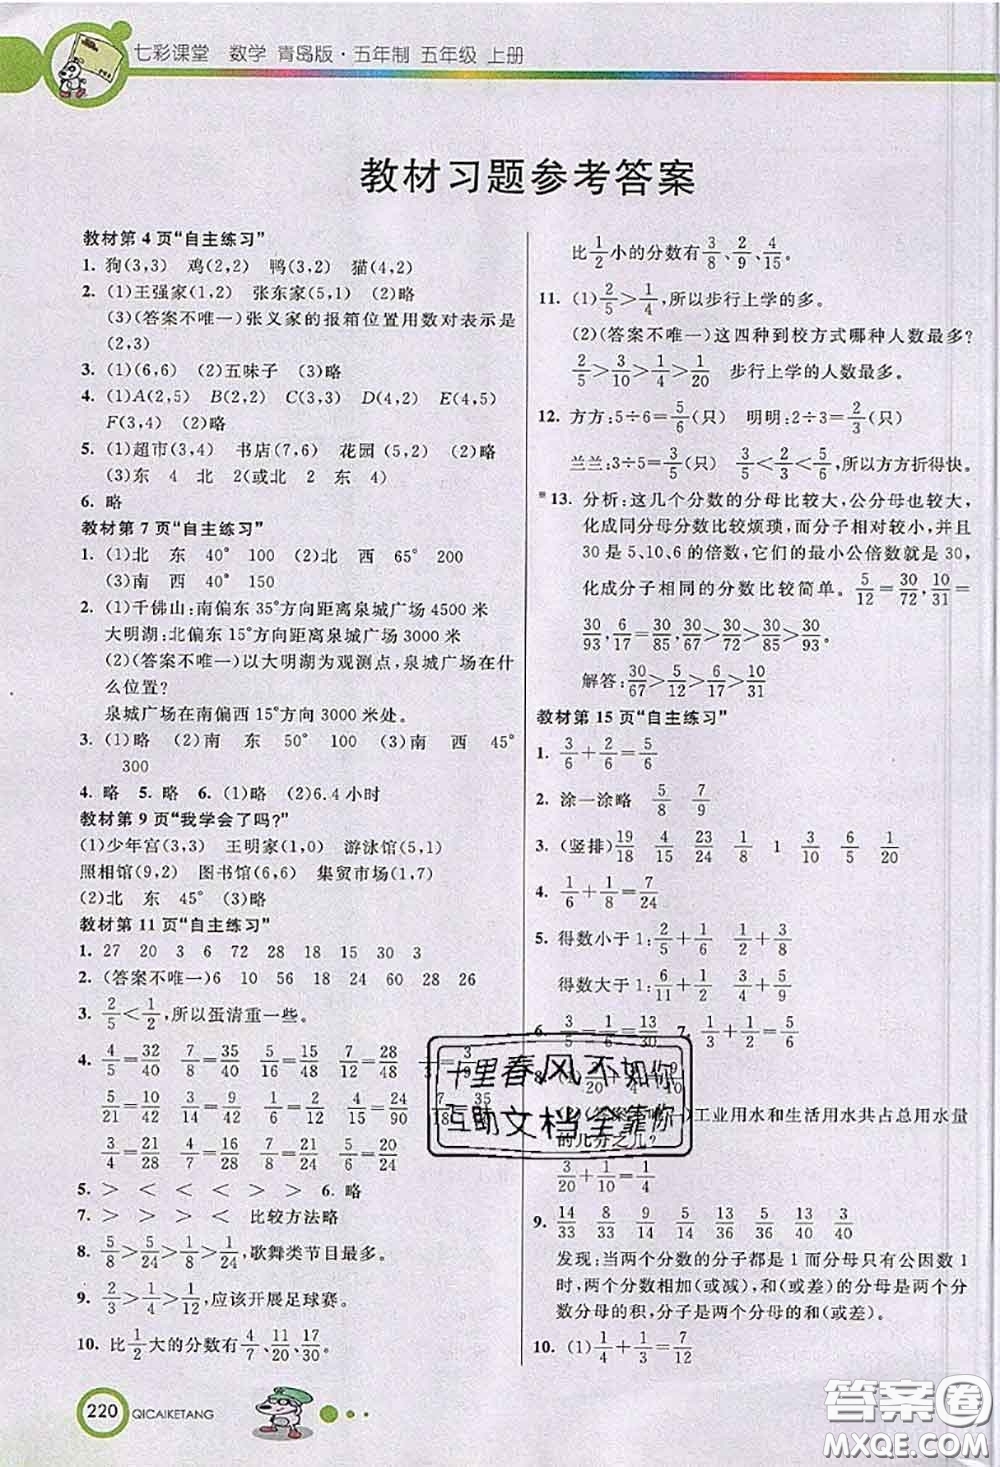 七彩课堂 数学 青岛版·五年制 五年级 上册
教材习题参考答案
教材第4页“自主练习”
1. 狗(3,3) 鸡(2,2) 鸭(3,2) 猫(4,2)
2. (1)王强家(1,2) 张东家(5,1) (2)略
(3)(答案不唯一)张义家的报箱位置用数对表示是
(2,3)
3. (1)(6,6) (2)五味子 (3)略
4. (1)A(2,5) B(2,2) C(3,5) D(4,2) E(4,5)
F(3,4) (2)略
5. (1)超市(3,4) 书店(7,6) 花园(5,1) (2)略
(3)东 4 北 2(或北 2 东 4)
6. 略
教材第7页“自主练习”
1. (1)北 东 40° 100 (2)北 西 65° 200
(3)南 西 40° 150
2. (1)千佛山:南偏东35°方向距离泉城广场4500米
大明湖:北偏东15°方向距离泉城广场3000米
(2)(答案不唯一)以大明湖为观测点,泉城广场在什
么位置?
泉城广场在南偏西15°方向3000米处。
3. (1)略 (2)南 东 50° 100 (3)南 西 45°
300
4. 略 5. 略 6. (1)略 (2)6.4小时
教材第9页“我学会了吗?”
(1)少年宫(3,3) 王明家(1,4) 游泳馆(5,1)
照相馆(9,2) 图书馆(6,6) 集贸市场(1,7)
(2)北 东 45° (3)略
教材第11页“自主练习”
1. 27 20 3 6 72 28 18 15 30 3
2. (答案不唯一)6 10 56 18 24 60 28 26
3. 2/5<1/2,所以蛋清重一些。
4. 4/5=32/40 7/8=35/40 4/5=16/20 1/4=5/20 2/7=8/28 3/4=21/28 1/3=3/9
6/5=120/100 91/100=91/100 4/9=40/90 7/10=63/90 5/6=15/18 7/9=14/18 4/7=24/42 5/6=35/42 9/10=
18/20 3/20=3/20 11/12=22/24 5/8=15/24 1/6=4/24 5/8=15/24 2/5=8/20 3/4=15/20
5. > < < < > > 6. 略
7. > > > < 比较方法略
8. 5/8>5/24>1/8>1/24,歌舞类节目最多。
9. 2/3>1/4>1/12,应该开展足球赛。
10. 比1/2大的分数有4/7、11/20、17/30。
比1/2小的分数有3/8、2/9、4/15。
11. (1)2/5>1/4,所以步行上学的多。
(2)(答案不唯一)这四种到校方式哪种人数最多?
2/5>3/10>1/4>1/20 步行上学的人数最多。
12. 方方:5÷6=5/6(只) 明明:2÷3=2/3(只)
兰兰:3÷5=3/5(只) 3/5<2/3<5/6,所以方方折得快。
*13. 分析:这几个分数的分母比较大,公分母也较大,
化成同分母分数比较烦琐,而分子较小,并且
30是5、10、6的倍数,它们的最小公倍数就是30,
化成分子相同的分数比较简单。5/12=30/72,10/31=
30/93,6/17=30/85,30/67>30/72>30/85>30/93
解答:30/67>5/12>6/17>10/31
教材第15页“自主练习”
1. 3/6+2/6=5/6
2. 涂一涂略 5/8 7/9
3. (竖排)19/18 4/15 23/24 1/8 1 3/10 6/5 1/20
4. 1/6+1/8=7/24
5. 得数小于1:2/5+1/6 1/2+1/3
得数大于1:6/11+1/2 4/5+1/4
6. 3/5-1/6=13/30 7. 1/3+1/2=5/6
(2)(答案不唯一)工业用水和生活用水共占总用水量
的几分之几?
3/20+1/10=1/4
9. 14/33 8/33 9/14 5/14 8/15 2/15 13/40 3/40
发现:当两个分数的分子都是1而分母只有公因数1
时,两个分数相加(或减),和(或差)的分母是两个分
数分母的积,分子是两个分母的和(或差)。
10. (1)1/4+1/3=7/12
十里春风不如你
互助文档全靠你
220 QICAIKETANG
答案卷
MXQE.COM